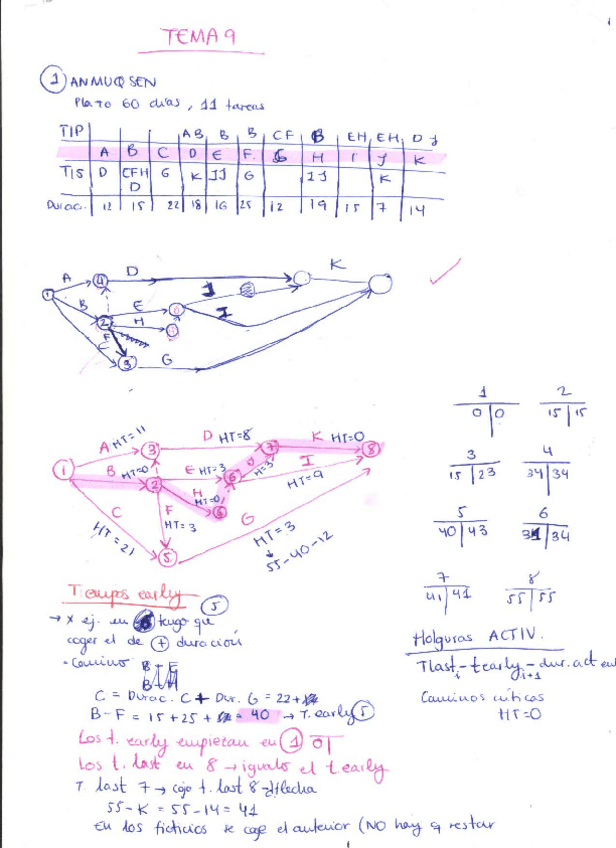 TEMA 9
1 ANMUQSEN
Plazo 60 días, 11 tareas
TIP AB B B CF B EH EH D J
A B C D E F G H I J K
TIS D CFH D G K IJ G IJ K
Durac. 12 15 22 18 16 25 12 19 15 7 14
A D K
1 4
B E J
2 H I
F
C 3 G
A HT=11 D HT=8 K HT=0
1 3 7 8
B HT=0 E HT=3 J H=3 I
2 6 HT=9
H HT=0
C F HT=3 G
HT=21 HT=3
5 55-40-12
1 2
0 0 15 15
3 4
15 23 34 34
5 6
40 43 34 34
7 8
41 41 55 55
Tiempos early 5
→ x ej. en tengo que
coger el de + duración
- Camino B-F
B-H
C = Durac. C + Dur. G = 22+
B-F = 15 + 25 + = 40 → T. early 5
Los t. early empiezan en 1 0
Los t. last en 8 → igualo el t early
T. last 7 → cojo t. last 8 - flecha
55-K = 55-14 = 41
En los ficticios se coge el anterior (NO hay q restar
Holguras ACTIV.
Tlast i - tearly i+1 - dur. act
Caminos críticos
HT=0